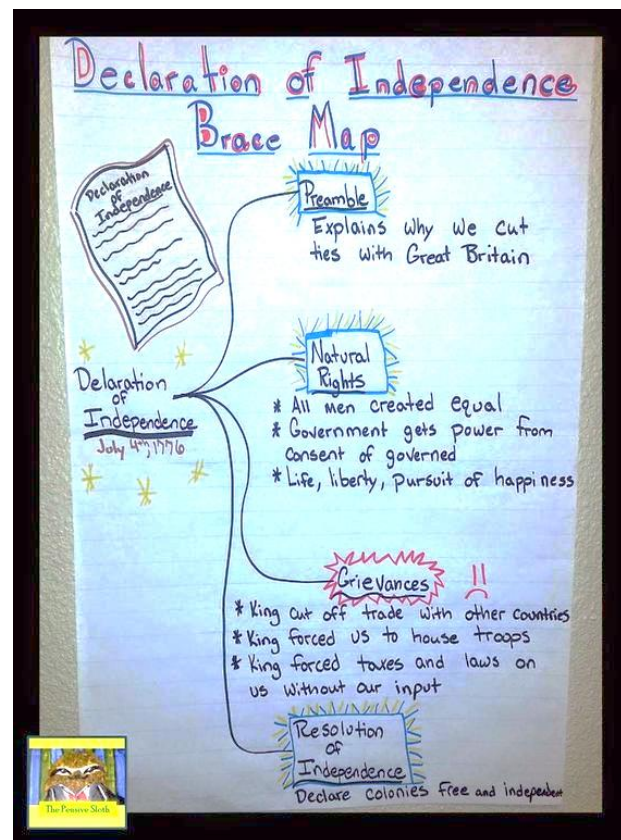 Declaration of Independence
Brace Map
Declaration
of
Independence
Preamble
Explains why we cut
ties with Great Britain
Delaration
of
Independence
July 4th, 1776
Natural
Rights
* All men created equal
* Government gets power from
consent of governed
* Life, liberty, pursuit of happiness
Grievances
* King cut off trade with other countries
* King forced us to house troops
* King forced taxes and laws on
us without our input
Resolution
of
Independence
Declare colonies free and independent
The Pensive Sloth